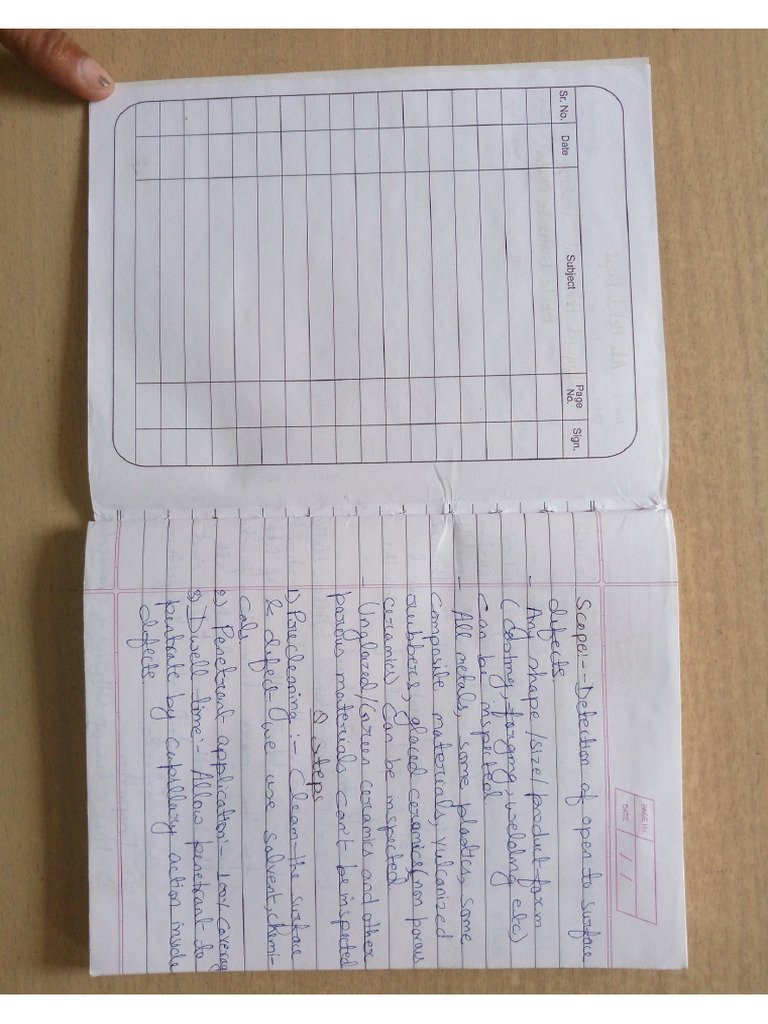 Sr. No. Date Subject Page No. Sign.
PAGE No.
DATE / /
Scope:- - Detection of open to surface
defects.
- Any shape/size/product form
(casting, forging, welding etc)
can be inspected
- All metals, some plastics, some
composite materials, vulcanized
rubbers, glazed ceramics (non porous
ceramics) can be inspected
- Unglazed/Green ceramics and other
porous materials can't be inspected
Steps
1) Precleaning :- Clean the surface
& defect we use solvent, chemi-
cals
2) Penetrant application:- 100% Coverag
3) Dwell time:- Allow penetrant to
pentrate by capillary action inside
defects.